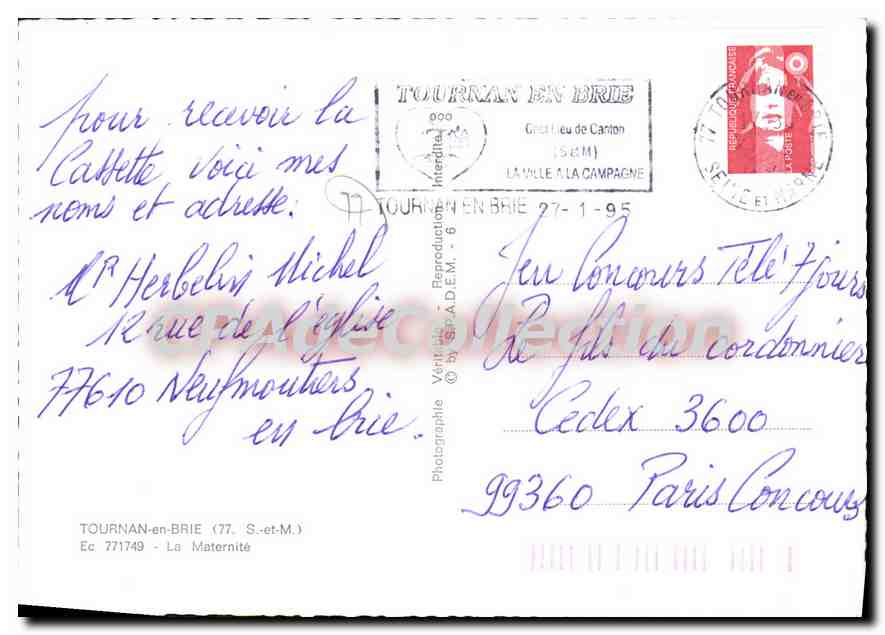 pour recevoir la
Cassette voici mes
noms et adresse:
77
Mr Herbelin Michel
12 rue de l'église
77610 Neufmoutiers
en brie.
TOURNAN-en-BRIE (77. S.-et-M.)
Ec 771749 - La Maternité
Photographie Véritable - Reproduction Interdite
© by S.P.A.D.E.M. - 6
CPADeCollection
TOURNAN EN BRIE
Chef Lieu de Canton
(S&M)
LA VILLE A LA CAMPAGNE
TOURNAN EN BRIE 27-1-95
77 TOURNAN EN BRIE
SEINE ET MARNE
REPUBLIQUE FRANÇAISE
LA POSTE
Jeu Concours Télé 7 jours
Le fils du cordonnier
Cedex 3600
99360 Paris Concours